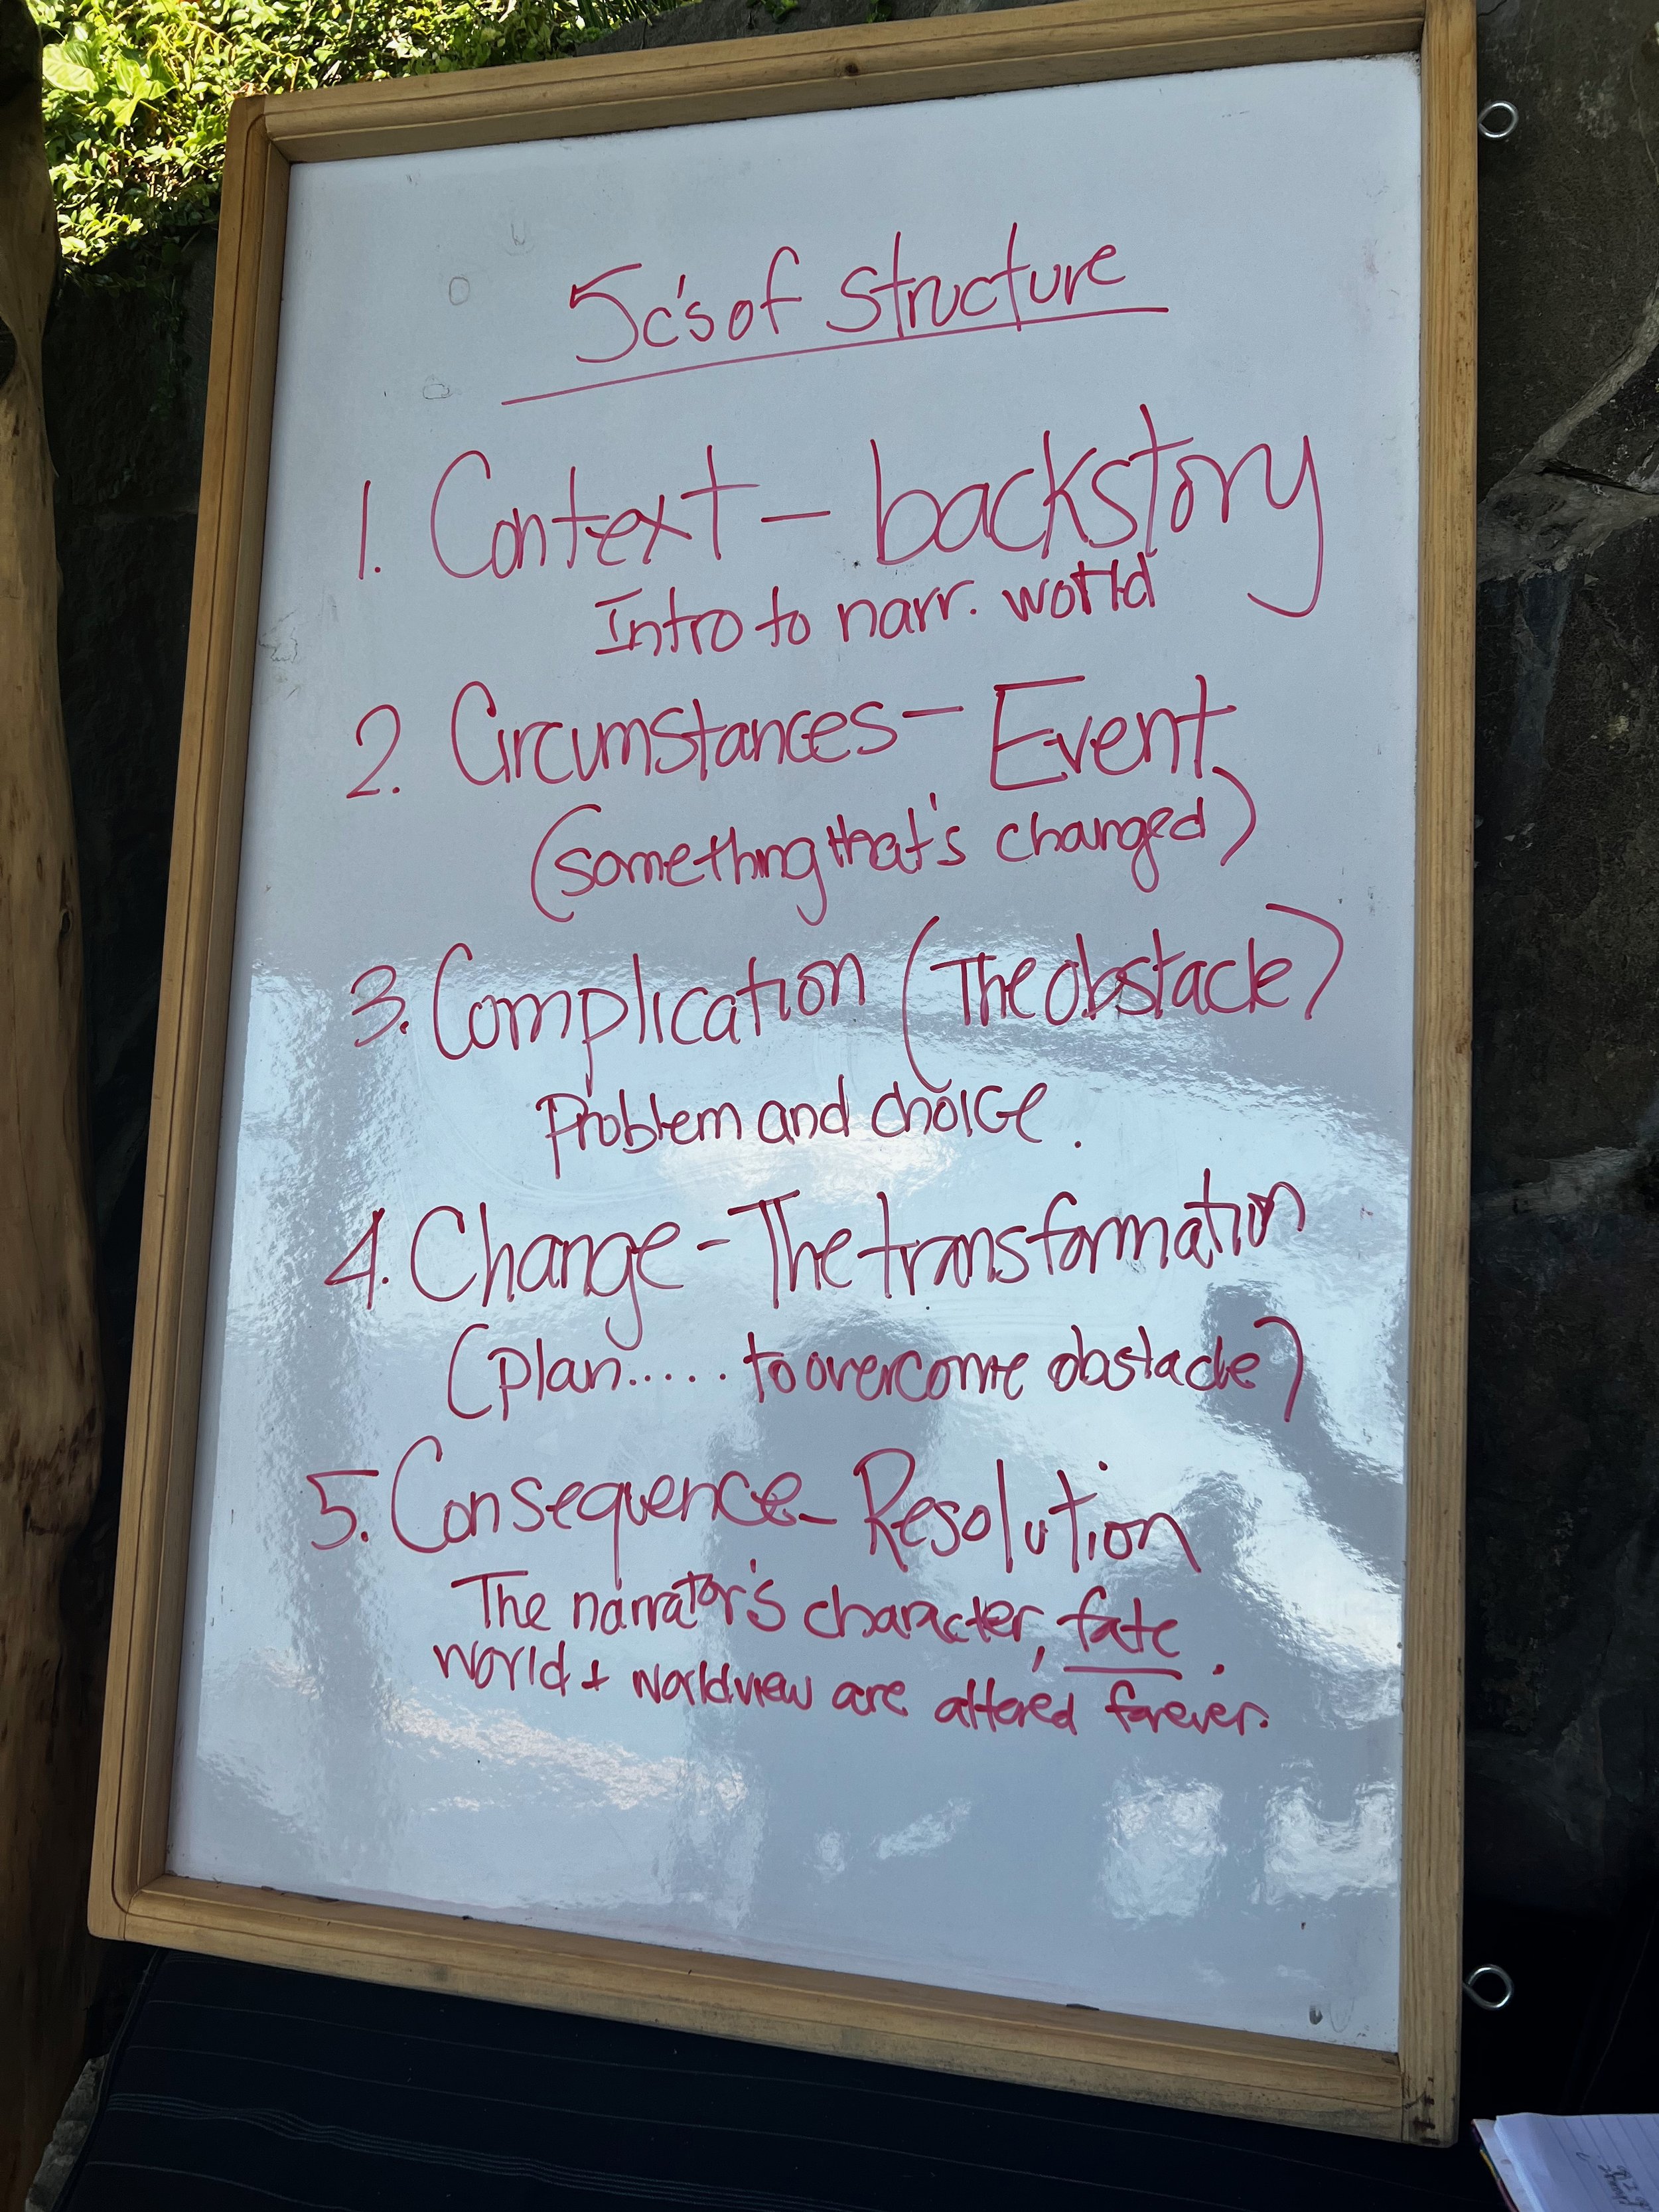 5c's of structure
1. Context – backstory
Intro to narr. world
2. Circumstances – Event
(something that's changed)
3. Complication (The obstacle)
Problem and choice.
4. Change - The transformation
(plan..... to overcome obstacle)
5. Consequence – Resolution
The narrator's character, fate.
world + worldview are altered forever.